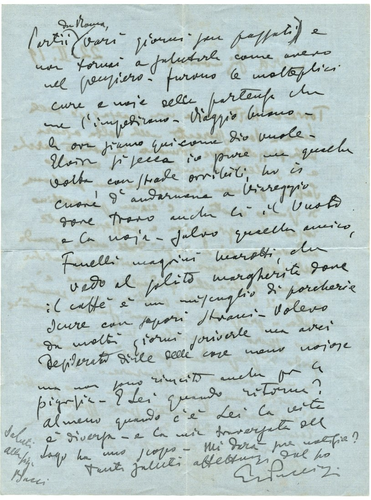 da Roma,
Partii (vari giorni son passati) e
non tornai a salutarla come avevo
nel pensiero - furono le molteplici
cure e noie della partenza che
me l'impedirono - Viaggio buono -
e ora siamo qui come dio vuole -
Elvira si secca io pure ma qualche
volta con strade orribili, ho il
cuore d'andarmene a Viareggio
dove trovo anche lì il vuoto
e la noja - salvo qualche amico,
Fanelli magrini marotti, che
vedo al solito margherita dove
il caffè è un miscuglio di porcherie
scure con sapori strani - Volevo
da molti giorni scriverle ma avrei
desiderato dirle delle cose meno noiose
ma non sono riuscito anche per la
pigrizia - E Lei quando ritorna?
almeno quando c'è Lei la vita
è diversa - e la mia traversata del
Lago ha uno scopo - Mi darà sue notizie?
Tanti saluti affettuosi dal suo
GPuccini
Saluti
alla sig.
Bacci